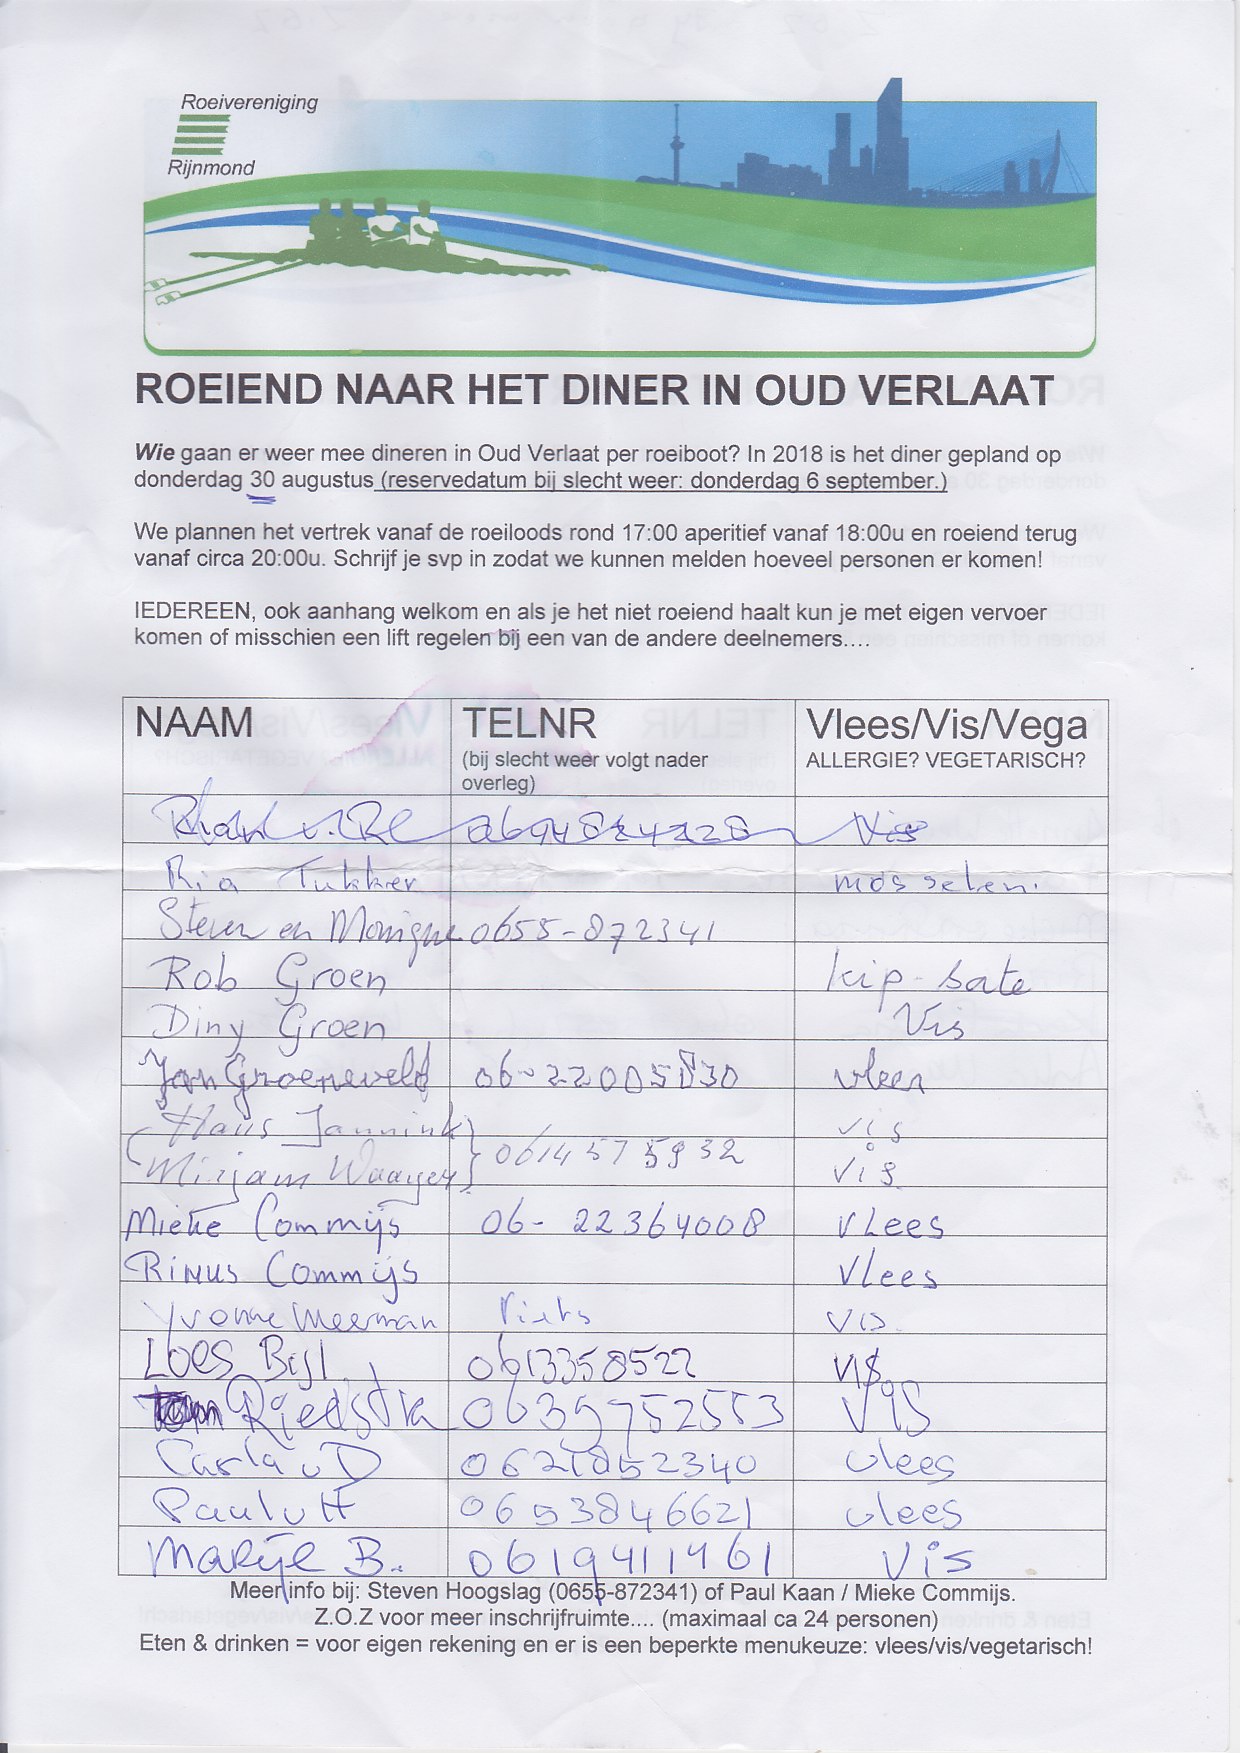 Roeivereniging
Rijnmond
ROEIEND NAAR HET DINER IN OUD VERLAAT
Wie gaan er weer mee dineren in Oud Verlaat per roeiboot? In 2018 is het diner gepland op
donderdag 30 augustus (reservedatum bij slecht weer: donderdag 6 september.)
We plannen het vertrek vanaf de roeiloods rond 17:00 aperitief vanaf 18:00u en roeiend terug
vanaf circa 20:00u. Schrijf je svp in zodat we kunnen melden hoeveel personen er komen!
IEDEREEN, ook aanhang welkom en als je het niet roeiend haalt kun je met eigen vervoer
komen of misschien een lift regelen bij een van de andere deelnemers....
NAAM TELNR Vlees/Vis/Vega
(bij slecht weer volgt nader ALLERGIE? VEGETARISCH?
overleg)
Vis
Ria Tukker mosselen.
Steven en Monique 0655-872341
Rob Groen kip-sate
Diny Groen Vis
Jan Groeneveld 06-22005830 vlees
Hans Jannink vis
Mirjam 0614575932 vis
Mieke Commijs 06-22364008 vLees
Rinus Commijs Vlees
Yvonne Meerman Niets vis.
Loes Bijl 0613358522 vis
Riedstra 0639752553 ViS
Carla v D 0621852340 vlees
Paul v H 0653846621 vlees
Marije B. 0619411461 Vis
Meer info bij: Steven Hoogslag (0655-872341) of Paul Kaan / Mieke Commijs.
Z.O.Z voor meer inschrijfruimte.... (maximaal ca 24 personen)
Eten & drinken = voor eigen rekening en er is een beperkte menukeuze: vlees/vis/vegetarisch!